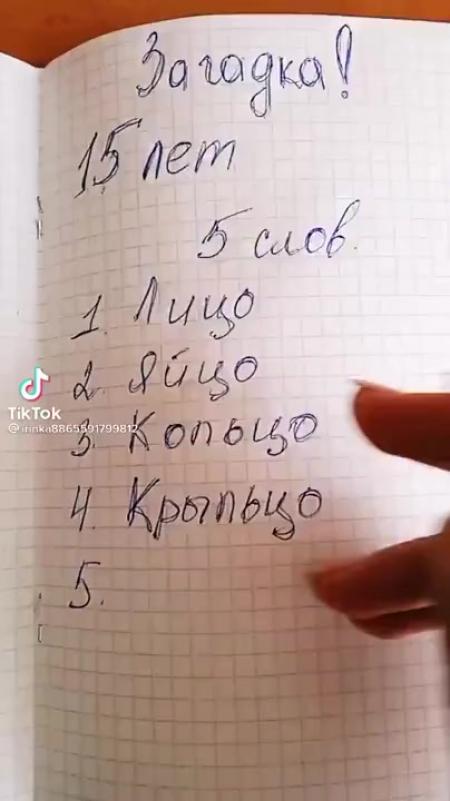 Загадка!
15 лет
5 слов.
1. Лицо
2. Яйцо
3. Кольцо
4. Крыльцо
5.
TikTok
@irinka8865591799812